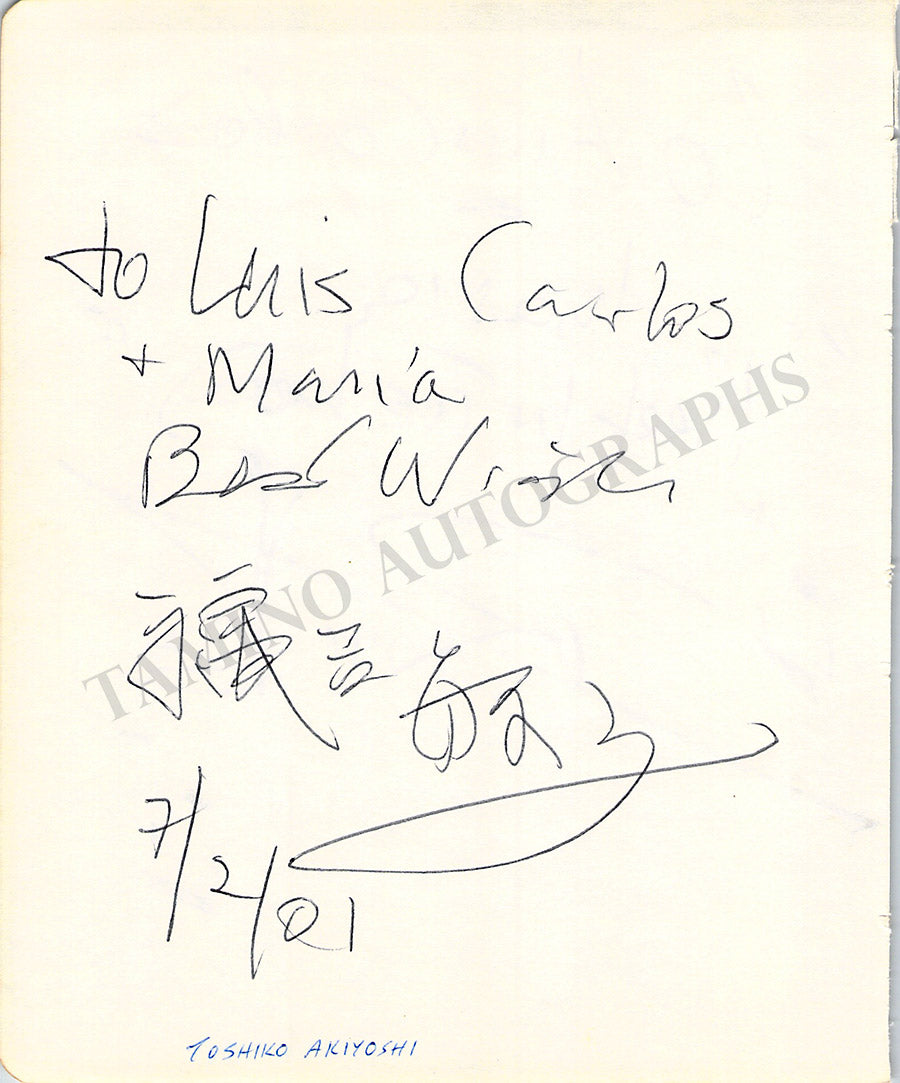 to Luis Carlos
+ María
Best Wishes
TAMINO AUTOGRAPHS
穐吉敏子
7/2/01
TOSHIKO AKIYOSHI